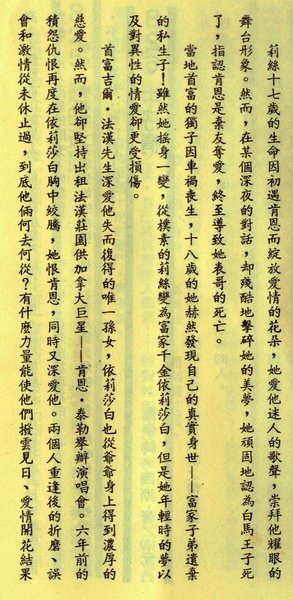 莉絲十七歲的生命因初遇肯恩而綻放愛情的花朵，她愛他迷人的歌聲，崇拜他耀眼的
舞台形象。然而，在某個深夜的對話，却殘酷地擊碎她的美夢，她頑固地認為白馬王子死
了，指認肯恩是棄友奪愛，終至導致她表哥的死亡。
當地首富的獨子因車禍喪生，十八歲的她赫然發現自己的真實身世——富家子弟遺棄
的私生子！雖然她搖身一變，從樸素的莉絲變為富家千金依莉莎白，但是她年輕時的夢以
及對異性的情愛卻更受損傷。
首富吉爾・法漢先生深愛他失而復得的唯一孫女，依莉莎白也從爺爺身上得到濃厚的
慈愛。然而，他卻堅持出租法漢莊園供加拿大巨星——肯恩・泰勒舉辦演唱會。六年前的
積怨仇恨再度在依莉莎白胸中絞騰，她恨肯恩，同時又深愛他。兩個人重逢後的折磨、誤
會和激情從未休止過，到底他倆何去何從？有什麼力量能使他們撥雲見日、愛情開花結果